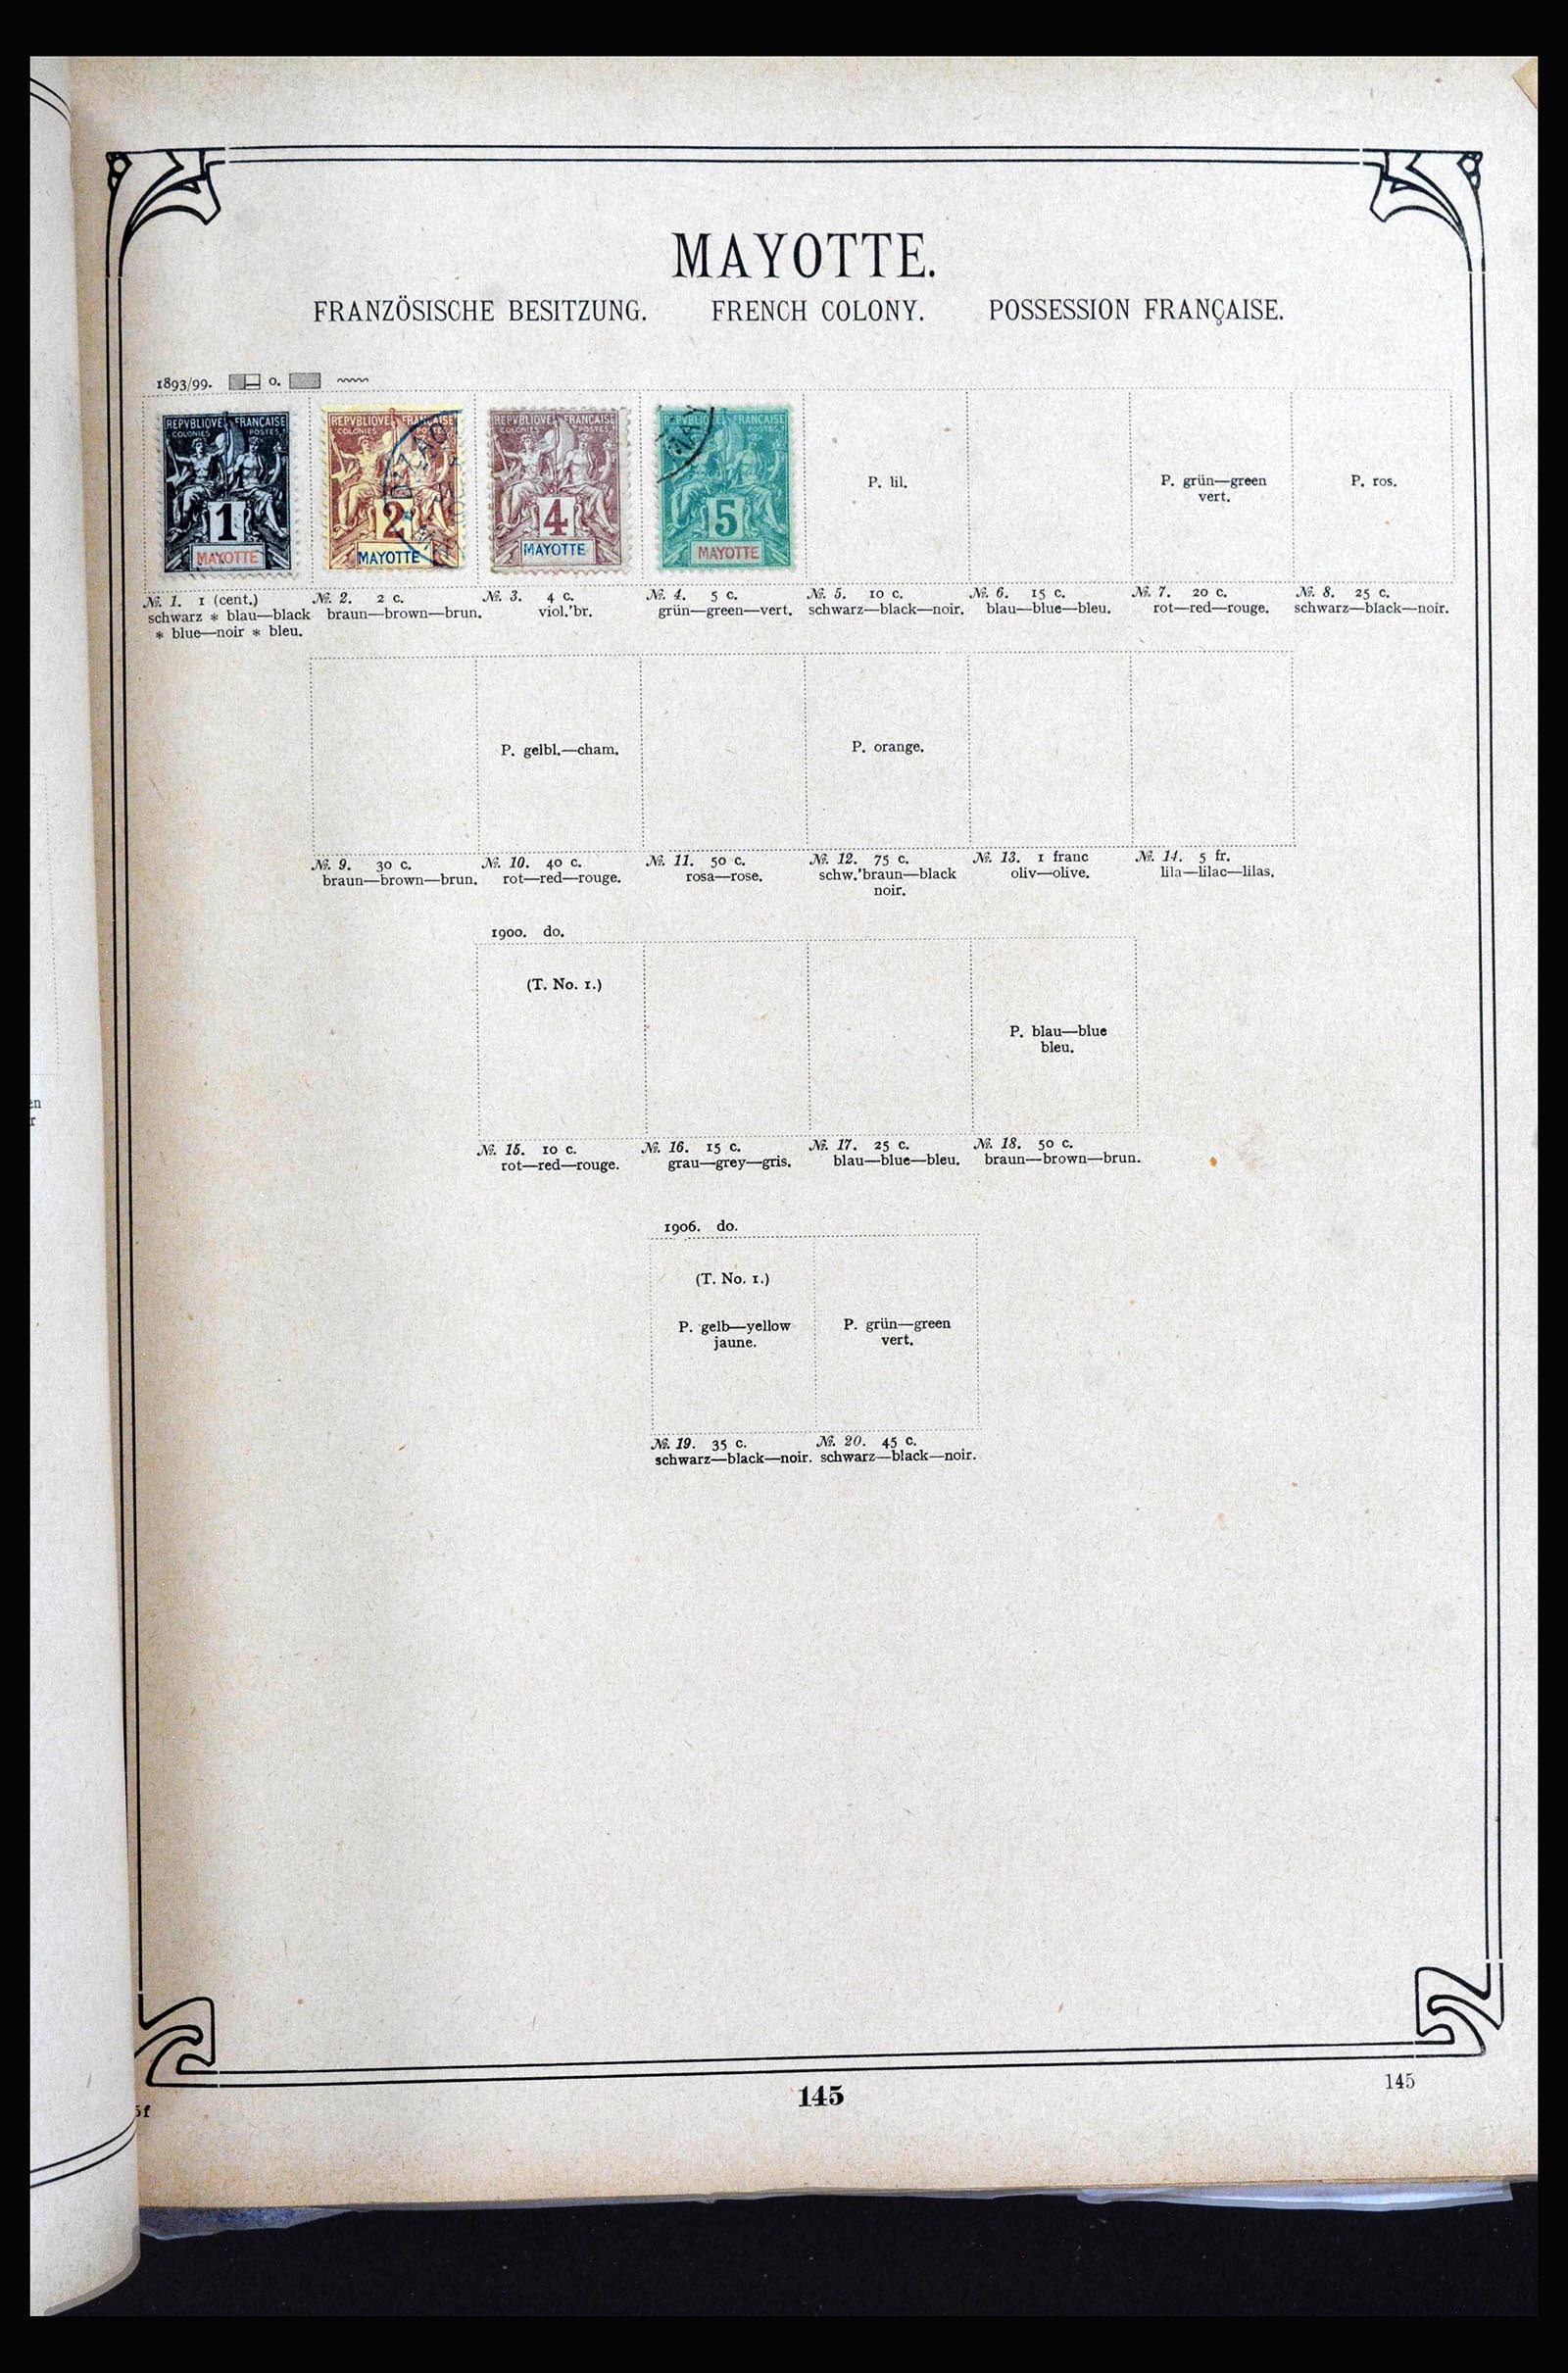 MAYOTTE.
FRANZÖSISCHE BESITZUNG. FRENCH COLONY. POSSESSION FRANÇAISE.
1893/99. o.
REPVBLIQVE FRANÇAISE REPVBLIQVE FRANÇAISE REPVBLIQVE FRANÇAISE REPVBLIQVE FRANÇAISE
COLONIES POSTES COLONIES POSTES COLONIES POSTES COLONIES POSTES
P. lil. P. grün—green P. ros.
vert.
1 2 4 5
MAYOTTE MAYOTTE MAYOTTE MAYOTTE
№. 1. 1 (cent.) №. 2. 2 c. №. 3. 4 c. №. 4. 5 c. №. 5. 10 c. №. 6. 15 c. №. 7. 20 c. №. 8. 25 c.
schwarz * blau—black braun—brown—brun. viol.'br. grün—green—vert. schwarz—black—noir. blau—blue—bleu. rot—red—rouge. schwarz—black—noir.
* blue—noir * bleu.
P. gelbl.—cham. P. orange.
№. 9. 30 c. №. 10. 40 c. №. 11. 50 c. №. 12. 75 c. №. 13. 1 franc №. 14. 5 fr.
braun—brown—brun. rot—red—rouge. rosa—rose. schw.'braun—black oliv—olive. lila—lilac—lilas.
noir.
1900. do.
(T. No. 1.)
P. blau—blue
bleu.
№. 15. 10 c. №. 16. 15 c. №. 17. 25 c. №. 18. 50 c.
rot—red—rouge. grau—grey—gris. blau—blue—bleu. braun—brown—brun.
1906. do.
(T. No. 1.)
P. gelb—yellow P. grün—green
jaune. vert.
№. 19. 35 c. №. 20. 45 c.
schwarz—black—noir. schwarz—black—noir.
145
145